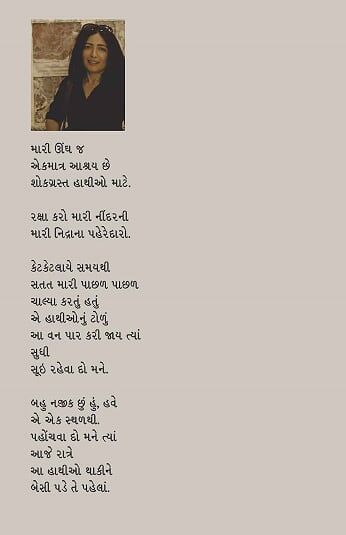 મારી ઊંઘ જ
એકમાત્ર આશ્રય છે
શોકગ્રસ્ત હાથીઓ માટે.
રક્ષા કરો મારી નીંદરની
મારી નિદ્રાના પહેરેદારો.
કેટકેટલાયે સમયથી
સતત મારી પાછળ પાછળ
ચાલ્યા કરતું હતું
એ હાથીઓનું ટોળું
આ વન પાર કરી જાય ત્યાં
સુધી
સૂઇ રહેવા દો મને.
બહુ નજીક છું હું, હવે
એ એક સ્થળથી.
પહોંચવા દો મને ત્યાં
આજે રાત્રે
આ હાથીઓ થાકીને
બેસી પડે તે પહેલાં.